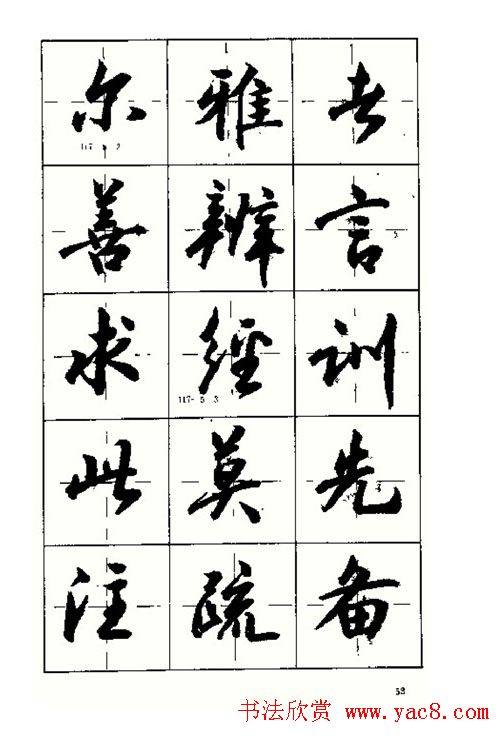 尔雅者
善辨言
求经训
此莫先
注疏备
117-5.2
117-5.3
53
书法欣赏 www.yac8.com